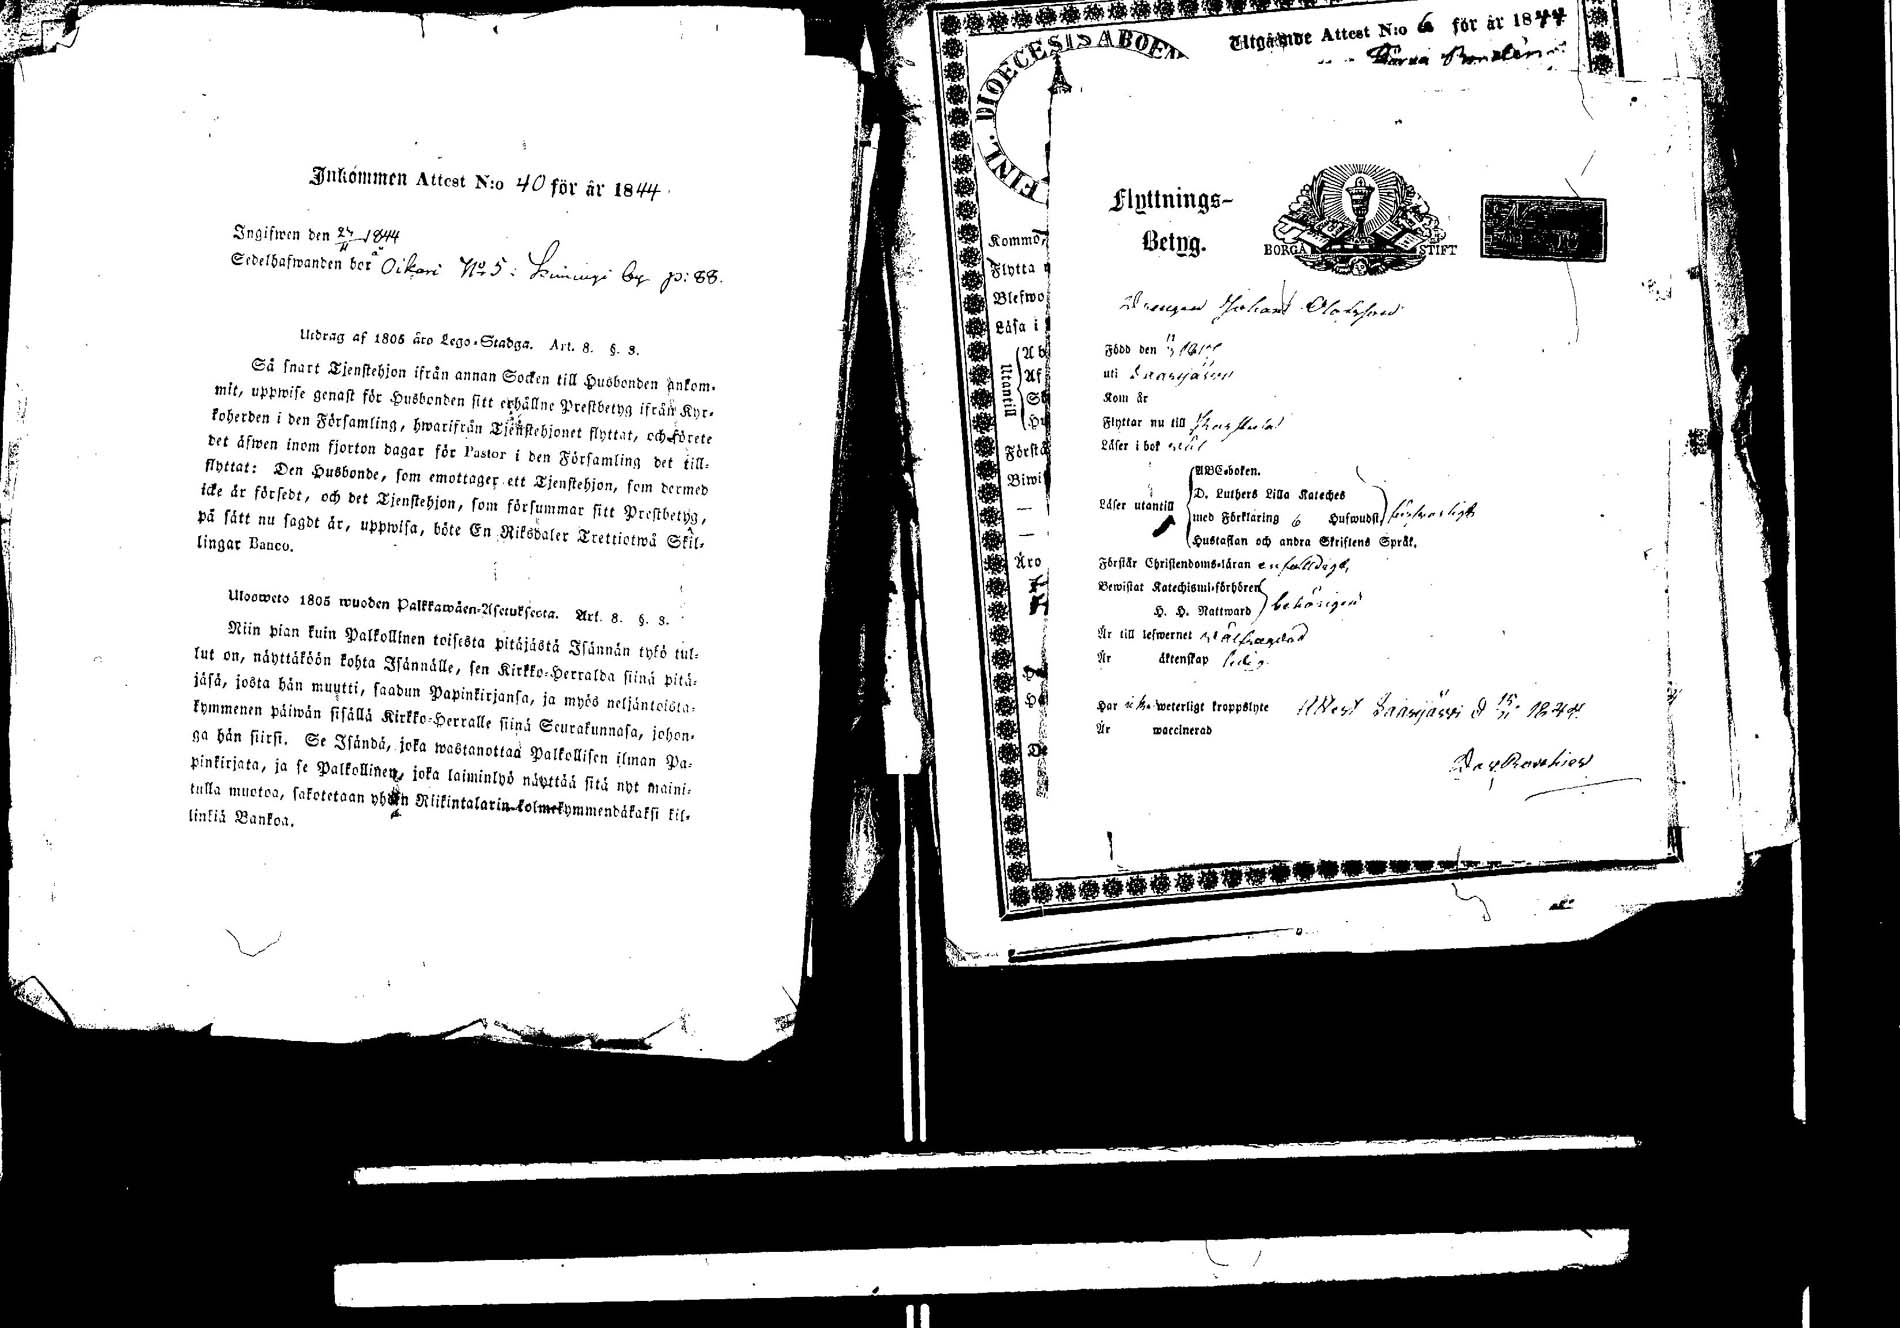 Inkommen Attest N:o 40 för år 1844.
Ingifwen den 24/11 1844
Sedelhafwanden bor å Oikari No 5 : by p: 88.
Utdrag af 1805 åro Lego-Stadga. Art. 8. §. 3.
Så snart Tjenstehjon ifrån annan Socken till Husbonden ankom-
mit, uppwise genast för Husbonden sitt erhållne Prestbetyg ifrån Kyr-
koherden i den Församling, hwarifrån Tjenstehjonet flyttat, och förete
det äfwen inom fjorton dagar för Pastor i den Församling det till-
flyttat: Den Husbonde, som emottager ett Tjenstehjon, som dermed
icke är försedt, och det Tjenstehjon, som försummar sitt Prestbetyg,
på sätt nu sagdt är, uppwisa, böte En Riksdaler Trettiotwå Skil-
lingar Banco.
Uloosweto 1805 wuoden Palkkawäen-Asetuksesta. Art. 8. §. 3.
Niin pian kuin Palkollinen toisesta pitäjästä Isännän tykö tul-
lut on, näyttäköön kohta Isännälle, sen Kirkko-Herralda siinä pitä-
jäsä, josta hän muutti, saadun Papinkirjansa, ja myös neljäntoista-
kymmenen päiwän sisällä Kirkko-Herralle siinä Seurakunnasa, johon-
ga hän siirsi. Se Isändä, joka wastanottaa Palkollisen ilman Pa-
pinkirjata, ja se Palkollinen, joka laiminlyö näyttää sitä nyt maini-
tulla muotoa, sakotetaan yhden Riikintalarin kolmekymmendäkaksi kil-
linkiä Bankoa.
FINL. DIOECESIS ABOEN
Utgående Attest N:o 6 för år 1844
Kommo
Flytta
Blefwo
Läsa i
Utantill
Ab
Af
Förstå
Biwi
Äro
Flyttnings-
Betyg.
BORGÅ STIFT
Drengen Johan
Född den
uti Saarijärvi
Kom år
Flyttar nu till
Läser i bok
Läser utantill
ABCboken.
D. Luthers Lilla Kateches
med Förklaring 6 Hufwudst
Hustaflan och andra Skriftens Språk.
försvarligt
Förstår Christendoms-läran enfaldigt,
Bewistat Katechismi-förhören
H. H. Nattward
behörigen
Är till lefwernet wälfrägdad
Är äktenskap ledig.
Har icke weterligt kroppslyte
Är waccinerad
Attest Saarijärvi d 15/11 1844.